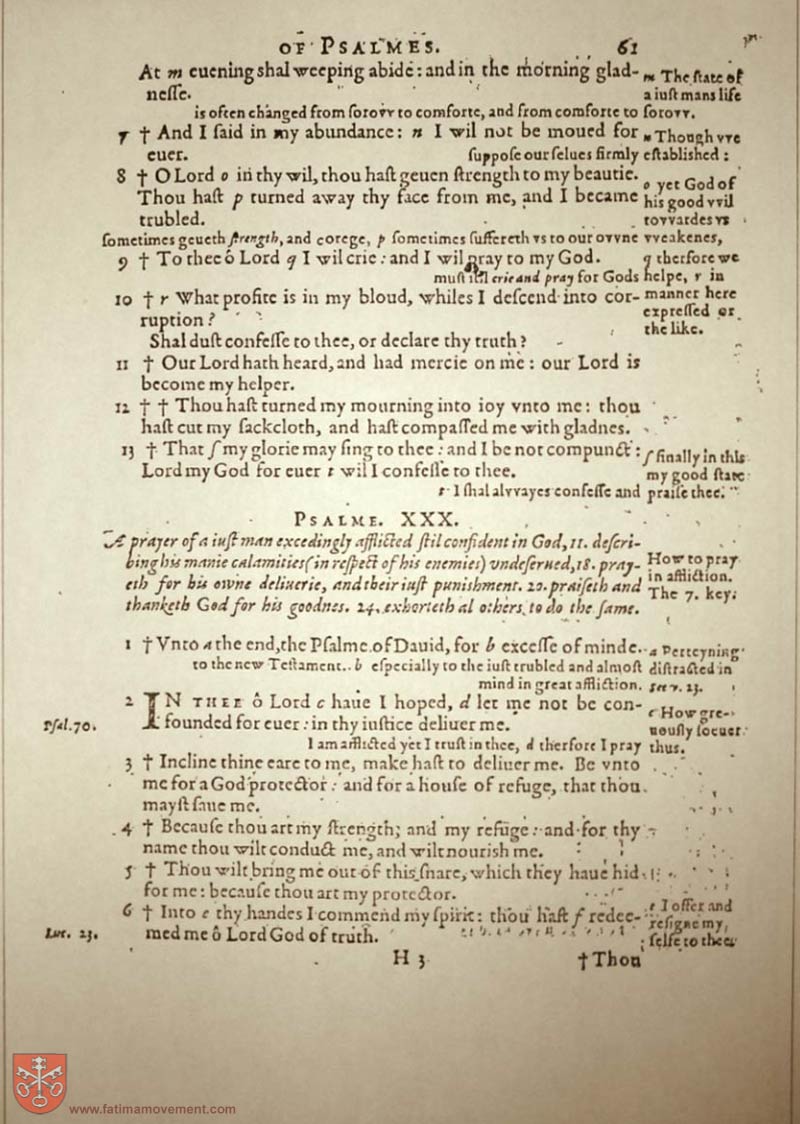 OF PSALMES. 61
At m euening shal weeping abide: and in the morning glad- m The state of
nesse. a iust mans life
is often changed from sorovv to comforte, and from comforte to sorovv.
7 † And I said in my abundance: n I wil not be moued for n Though vve
euer. suppose our selues firmly established:
8 † O Lord o in thy wil, thou hast geuen strength to my beautie. o yet God of
Thou hast p turned away thy face from me, and I became his good vvil
trubled. tovvardes vs
sometimes geueth strength, and corege, p sometimes suffereth vs to our ovvne vveakenes,
9 † To thee ô Lord q I wil crie: and I wil pray to my God. q therfore we
must stil crie and pray for Gods helpe, r in
10 † r What profite is in my bloud, whiles I descend into cor- manner here
ruption? expressed or
Shal dust confesse to thee, or declare thy truth? the like.
11 † Our Lord hath heard, and had mercie on me: our Lord is
become my helper.
12 † † Thou hast turned my mourning into ioy vnto me: thou
hast cut my sackcloth, and hast compassed me with gladnes.
13 † That ſ my glorie may sing to thee: and I be not compunct: ſ finally in this
Lord my God for euer t wil I confesse to thee. my good state
t I shal alvvayes confesse and praise thee.
PSALME. XXX.
A prayer of a iust man excedingly afflicted stil confident in God, 11. descri-
bing his manie calamities (in respect of his enemies) vndeserued, 18. pray- How to pray
eth for his owne deliuerie, and their iust punishment. 20. praiseth and in affliction.
thanketh God for his goodnes. 24. exhorteth al others to do the same. The 7. key.
1 † Vnto a the end, the Psalme of Dauid, for b excesse of minde. a Perteyning
to the new Testament. b especially to the iust trubled and almost distracted in
mind in great affliction. 23.
2 IN THEE ô Lord c haue I hoped, d let me not be con- c How gre-
Psal. 70. founded for euer: in thy iustice deliuer me. uously soeuer
I am afflicted yet I trust in thee, d therfore I pray thus.
3 † Incline thine eare to me, make hast to deliuer me. Be vnto
me for a God protector: and for a house of refuge, that thou
mayst saue me.
4 † Because thou art my strength; and my refuge: and for thy
name thou wilt conduct me, and wilt nourish me.
5 † Thou wilt bring me out of this snare, which they haue hid
for me: because thou art my protector.
6 † Into e thy handes I commend my spirit: thou hast f redee- I offer and
Luc. 23. med me ô Lord God of truth. resigne my
selfe to thee
H 3 † Thou
www.fatimamovement.com